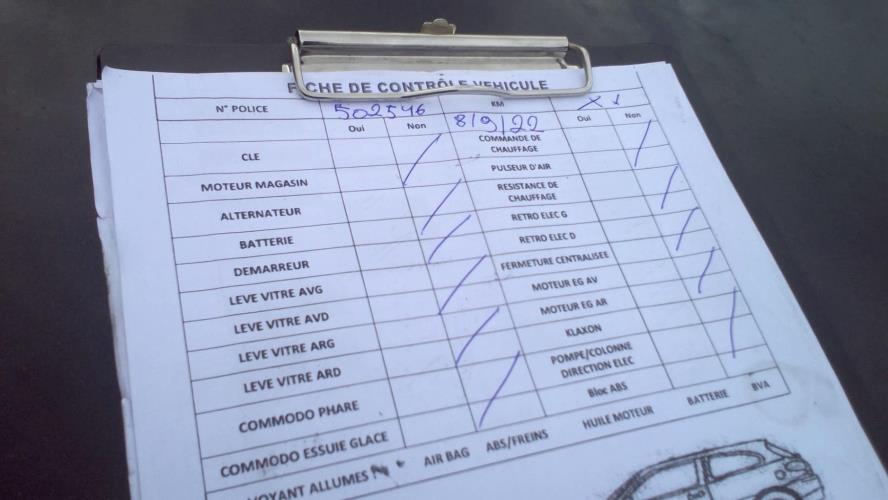 FICHE DE CONTRÔLE VEHICULE
N° POLICE 502546 KM
Oui Non 8/9/22 Oui Non
CLE COMMANDE DE CHAUFFAGE
MOTEUR MAGASIN PULSEUR D'AIR
ALTERNATEUR RESISTANCE DE CHAUFFAGE
BATTERIE RETRO ELEC G
DEMARREUR RETRO ELEC D
LEVE VITRE AVG FERMETURE CENTRALISEE
LEVE VITRE AVD MOTEUR EG AV
LEVE VITRE ARG MOTEUR EG AR
LEVE VITRE ARD KLAXON
COMMODO PHARE POMPE/COLONNE DIRECTION ELEC
COMMODO ESSUIE GLACE Bloc ABS
VOYANT ALLUMES AIR BAG ABS/FREINS HUILE MOTEUR BATTERIE BVA